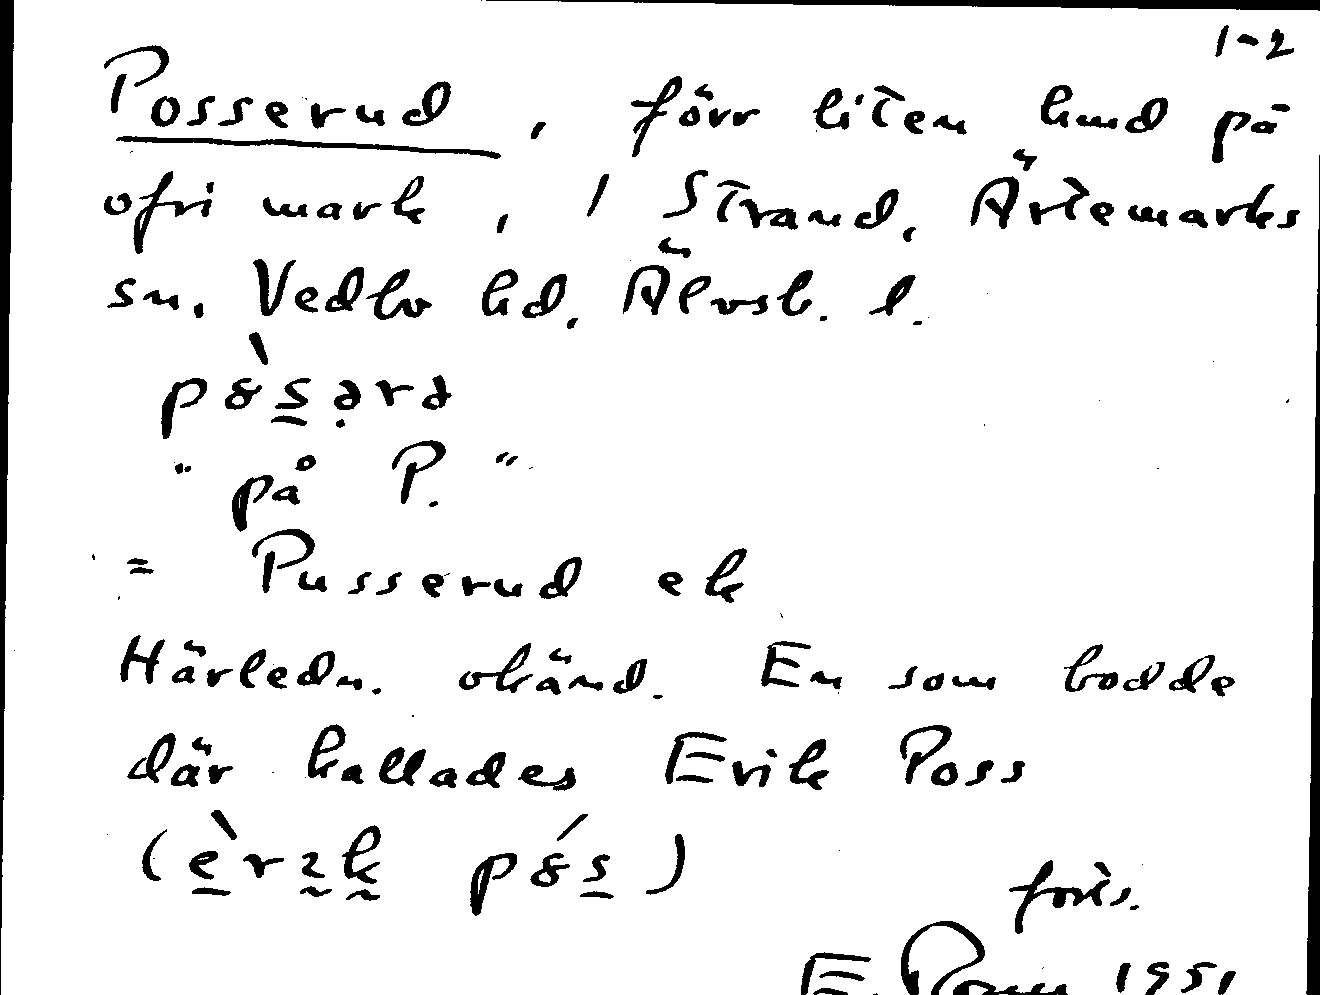 1-2
Posserud, förr liten lund på
ofri mark, 1 Strand, Ärtemarks
sn. Vedbo hd. Älvsb. l.
"på P."
= Pusserud ek
Härledn. okänd. En som bodde
där kallades Erik Poss
forts.
E. 1951